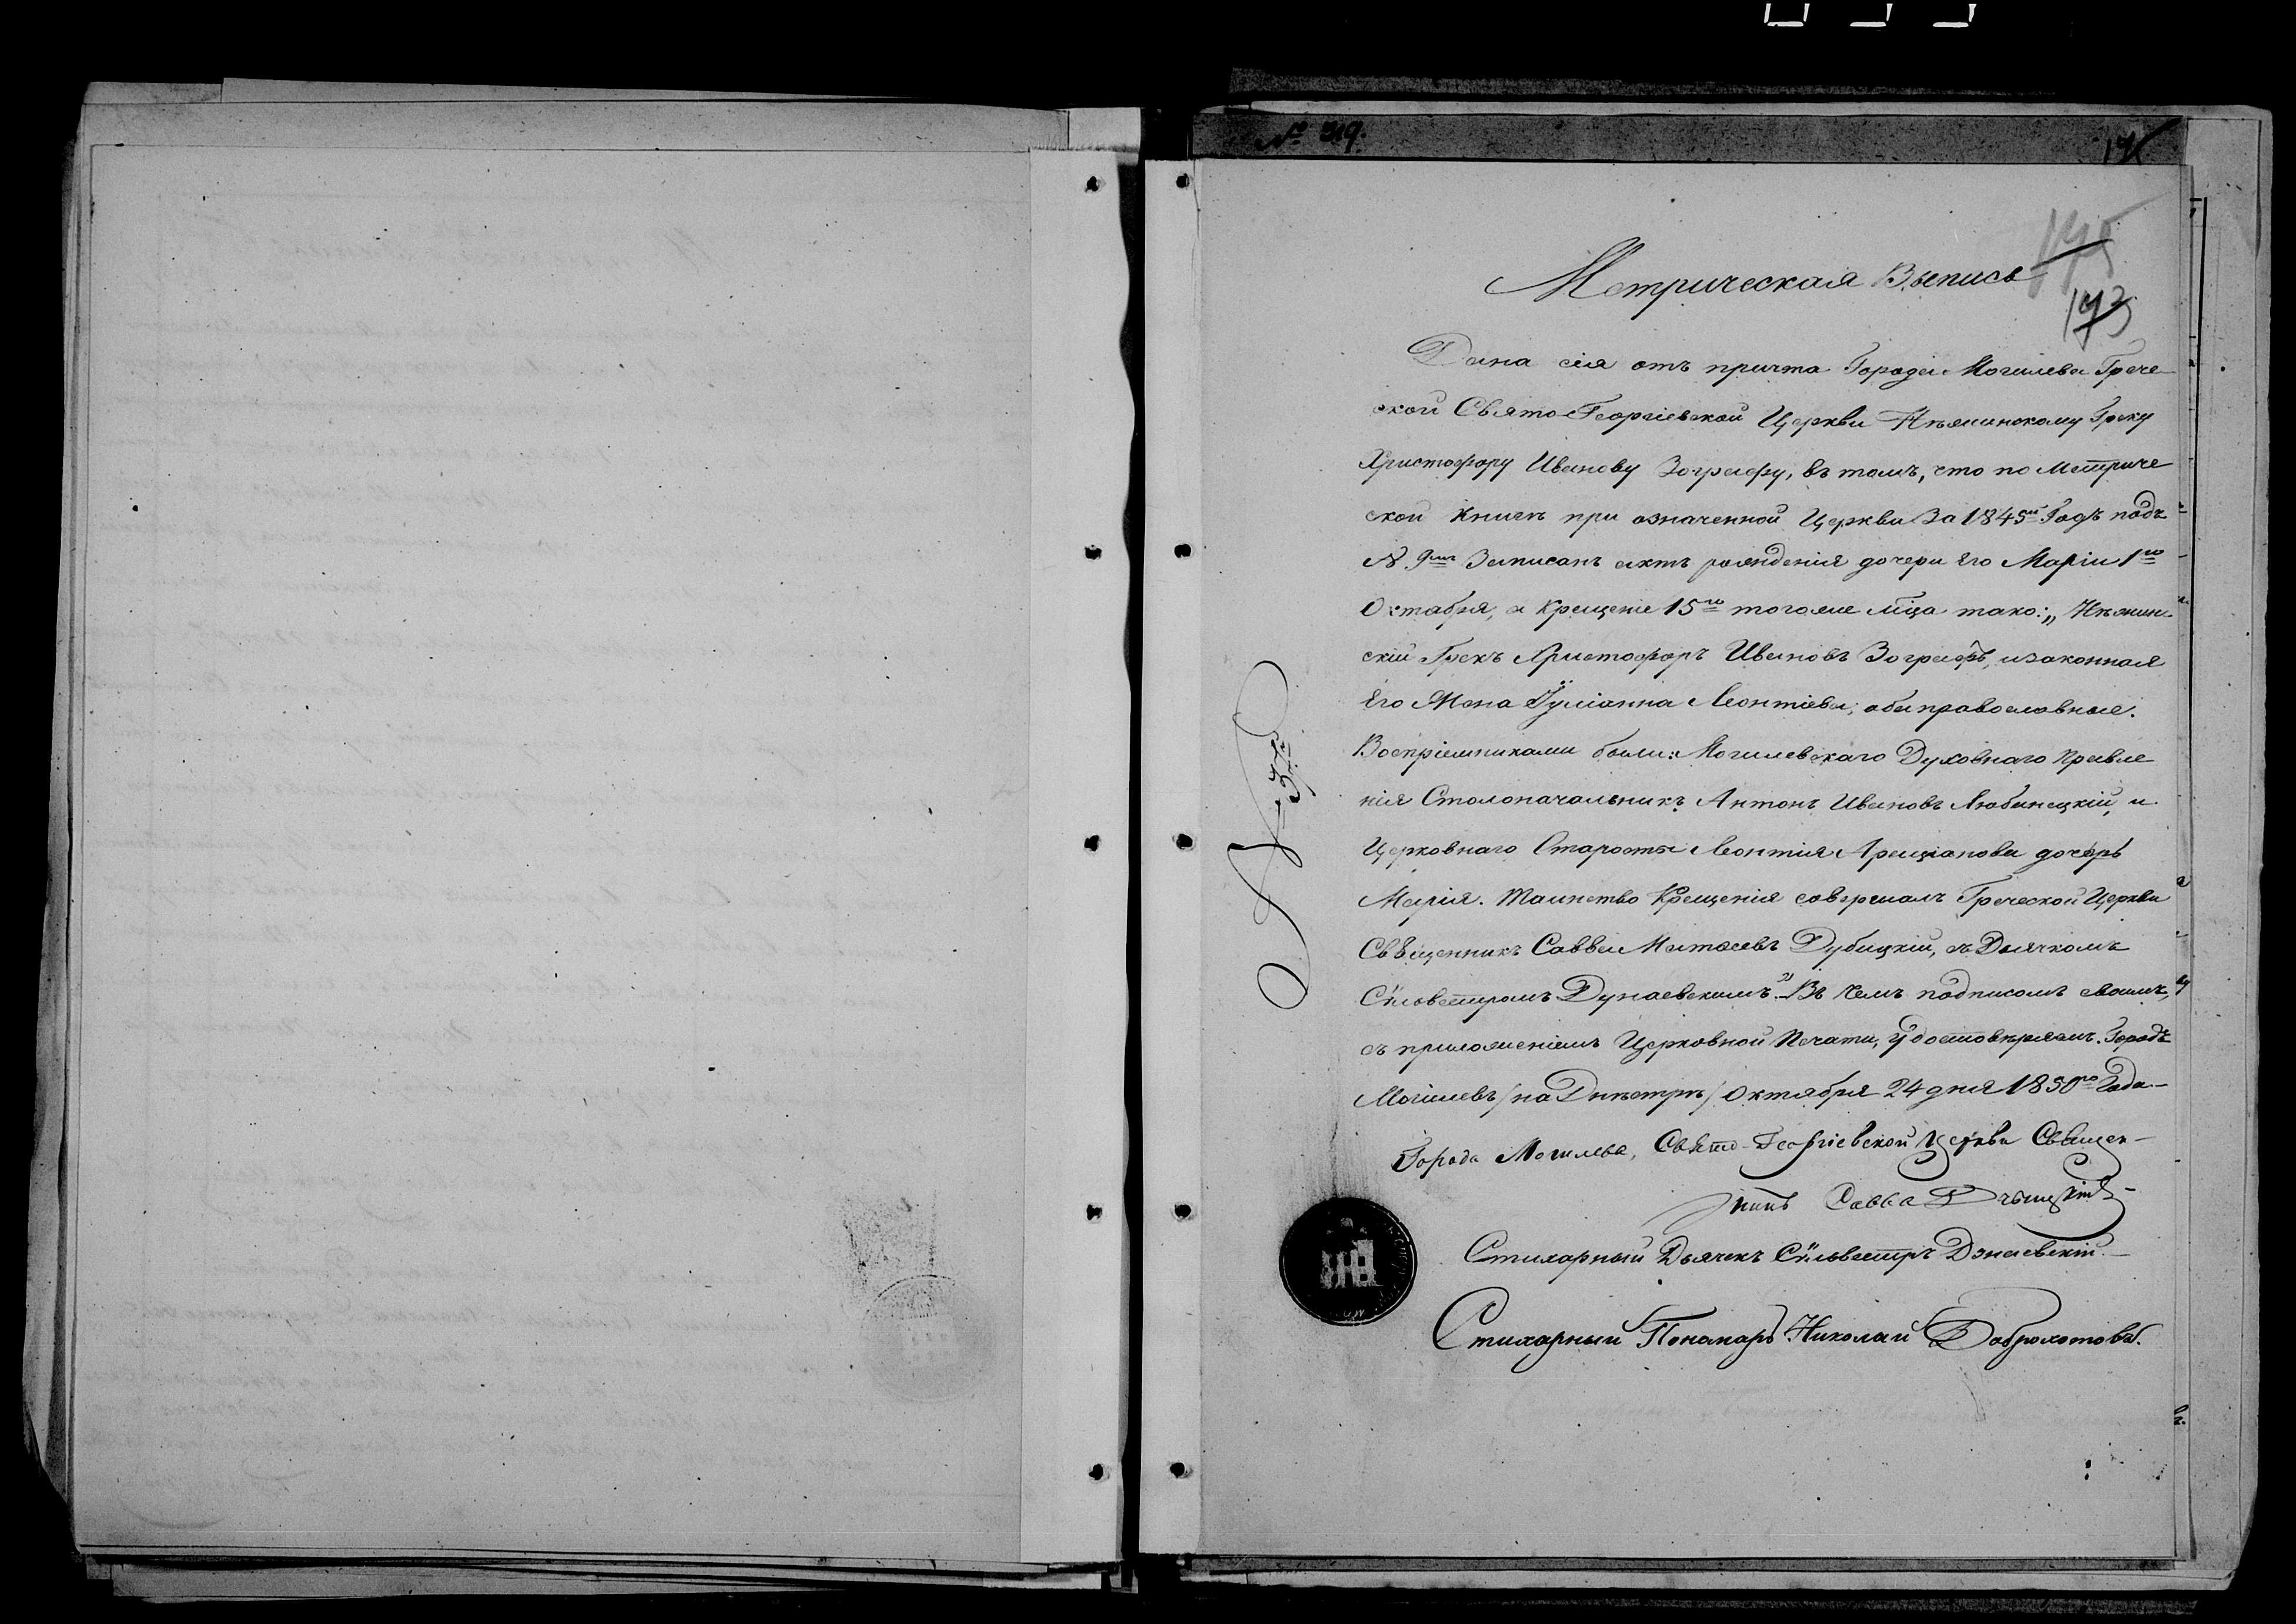 № 319.
175
173
Метрическая Выпись
Дана сія отъ причта Города Могилева Грече
ской Свято-Георгіевской Церкви Нѣжинскому Греку
Христофору Иванову Зографу, въ томъ, что по Метриче
ской Книгѣ при означенной Церкви За 1845й Годъ подъ
№ 9мъ Записанъ актъ рожденія дочери Его Маріи 1го
Октября, а Крещеніе 15го тогоже мца тако: „Нѣжин
скій Грекъ Христофоръ Ивановъ Зографъ, изаконная
Его Жена Іуліанна Леонтіева, оба православные.
Воспріемниками были: Могилевскаго Духовнаго Правле
нія Столоначальникъ Антонъ Ивановъ Любинецкій, и
Церковнаго Старосты Леонтія дочерь
Марія. Таинство Крещенія совершалъ Греческой Церкви
Священникъ Савва Матѳеевъ Дубицкій, съ Дьячкомъ
Сѵльвестромъ Дунаевскимъ." Въ чемъ подписомъ своимъ,
съ приложеніемъ Церковной Печати, удостовѣряемъ. Городъ
Могилевъ /на Днѣстрѣ/ Октября 24 дня 1850го Года.—
Города Могилева, Свято-Георгіевской Церкви Священ—
никъ Савва Дубицкій—
Стихарный Дьячекъ Сѵльвестръ Дунаевскій.—
Стихарный Понамарь Николай Доброхотовъ.
№ 37